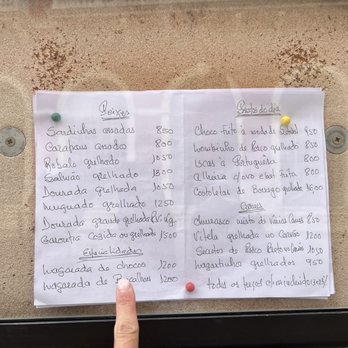 Peixes
Sardinhas assadas 800
Carapaus assados 800
Robalo grelhado 1050
Salmão grelhado 1000
Dourada grelhada 1050
grelhado 1250
Dourada grande grelhada
Garoupa Cozida ou grelhado 1500
Especialidades
Massada de chocos 1200
Massada de 1200
Pratos do dia
Choco frito à moda de 950
Lombinho de Porco grelhado 850
Iscas à Portuguesa 800
Alheira c/ovo e bat frita 800
Costeletas de Borrego grelhado 1000
Carnes
Churrasco misto de Várias Carnes 850
Vitela grelhada no Carvão 1200
Secretos de Porco Preto no Carvão 1050
grelhados 950
todos os preços